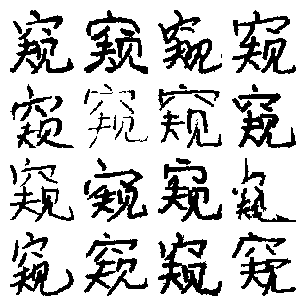 窥窥窥窥
窥窥窥窥
窥窥窥窥
窥窥窥窥